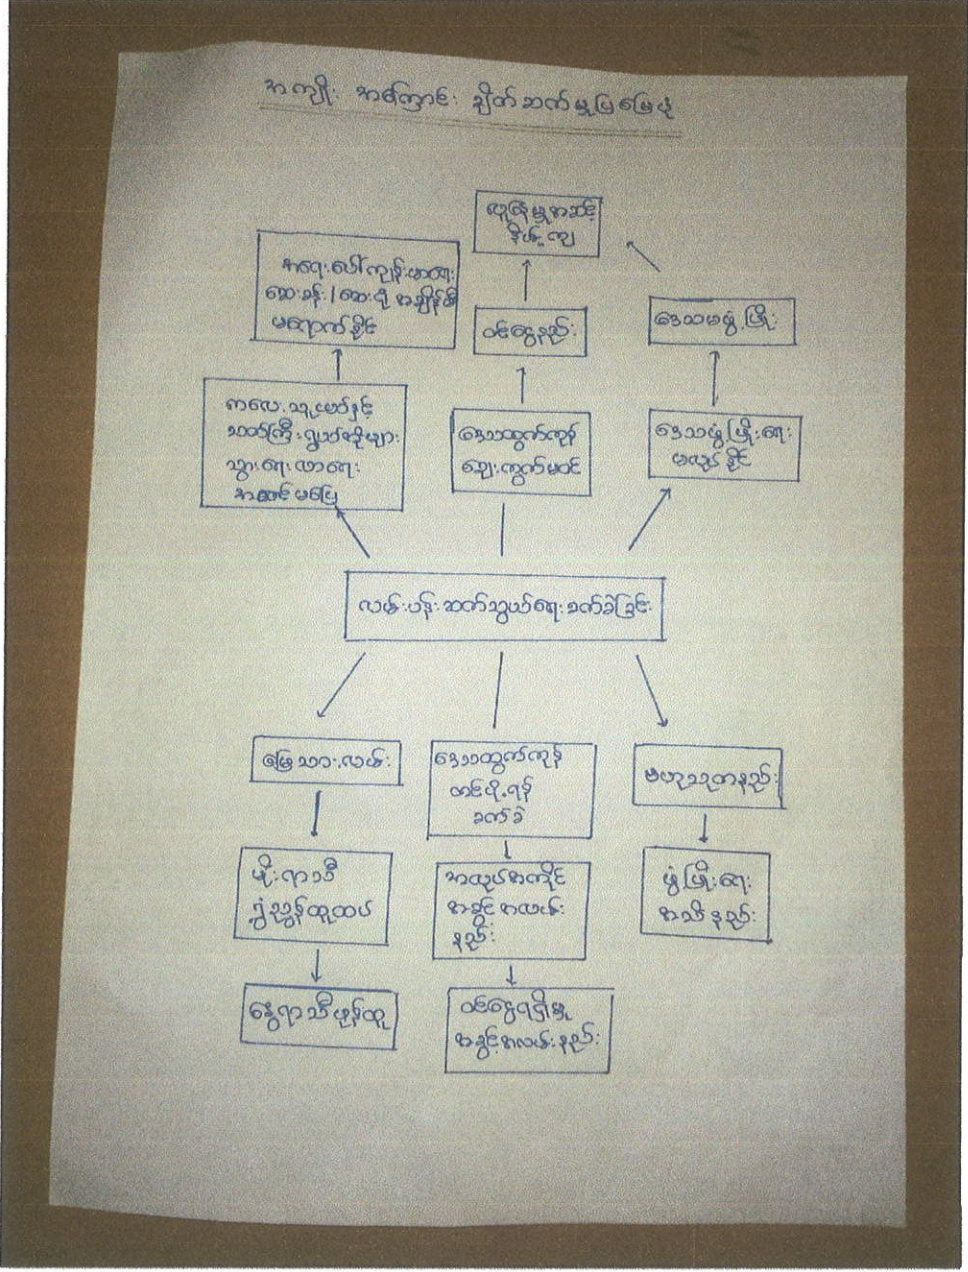 အကျိုး အကြောင်း ချိတ်ဆက်မှုပြမြေပုံ
လူနေမှုအဆင့်
နိမ့်ကျ
အရေးပေါ်ကျန်းမာရေး
ဆေးခန်း/ဆေးရုံ အချိန်မီ
မရောက်နိုင်
ဝင်ငွေနည်း
ဒေသမဖွံ့ဖြိုး
ကလေး၊သူငယ်နှင့်
သက်ကြီးရွယ်အိုများ
သွားရေးလာရေး
အဆင်မပြေ
ဒေသထွက်ကုန်
ဈေးကွက်မဝင်
ဒေသဖွံ့ဖြိုးရေး
မလုပ်နိုင်
လမ်းပန်းဆက်သွယ်ရေးခက်ခဲခြင်း
မြေသားလမ်း
ဒေသထွက်ကုန်
တင်ပို့ရန်
ခက်ခဲ
ဗဟုသုတနည်း
မိုးရာသီ
ရွှံ့ညွှန်ထူထပ်
အလုပ်အကိုင်
အခွင့်အလမ်း
နည်း
ဖွံ့ဖြိုးရေး
အသိနည်း
နွေရာသီဖုန်ထူ
ဝင်ငွေရရှိမှု
အခွင့်အလမ်းနည်း